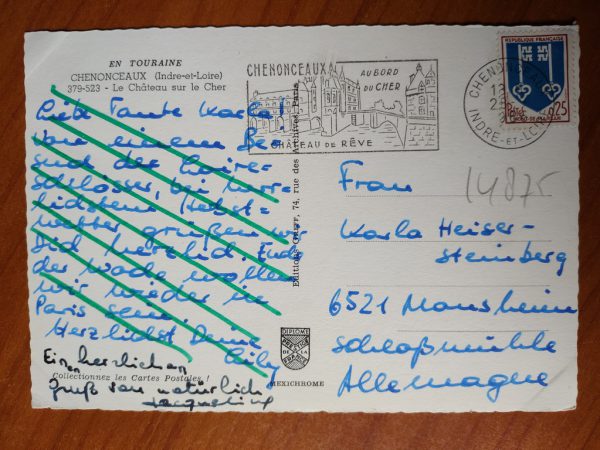 EN TOURAINE
CHENONCEAUX (Indre-et-Loire)
379-523 - Le Château sur le Cher
Liebe Tante Karla!
Von einem Be-
such der Loire-
schlösser, bei herr-
lichstem Herbst=
wetter grüßen wir
Dich herzlich. Ende
der Woche wollen
wir wieder in
Paris sein.
Herzlichst Deine
Cily
Einen herzlichen
Gruß von natürlich
Jacqueline
Collectionnez les Cartes Postales !
74, rue des Archives, Paris
CHENONCEAUX
AU BORD
DU CHER
CHÂTEAU DE RÊVE
INDRE-ET-LOIRE
REPUBLIQUE FRANÇAISE
0,25
14875
Frau
Karla Heiser-
steinberg
6521 Monsheim
Schloßmühle
Allemagne
DIPLOME
PRESTIGE
DE LA
FRANCE
MEXICHROME